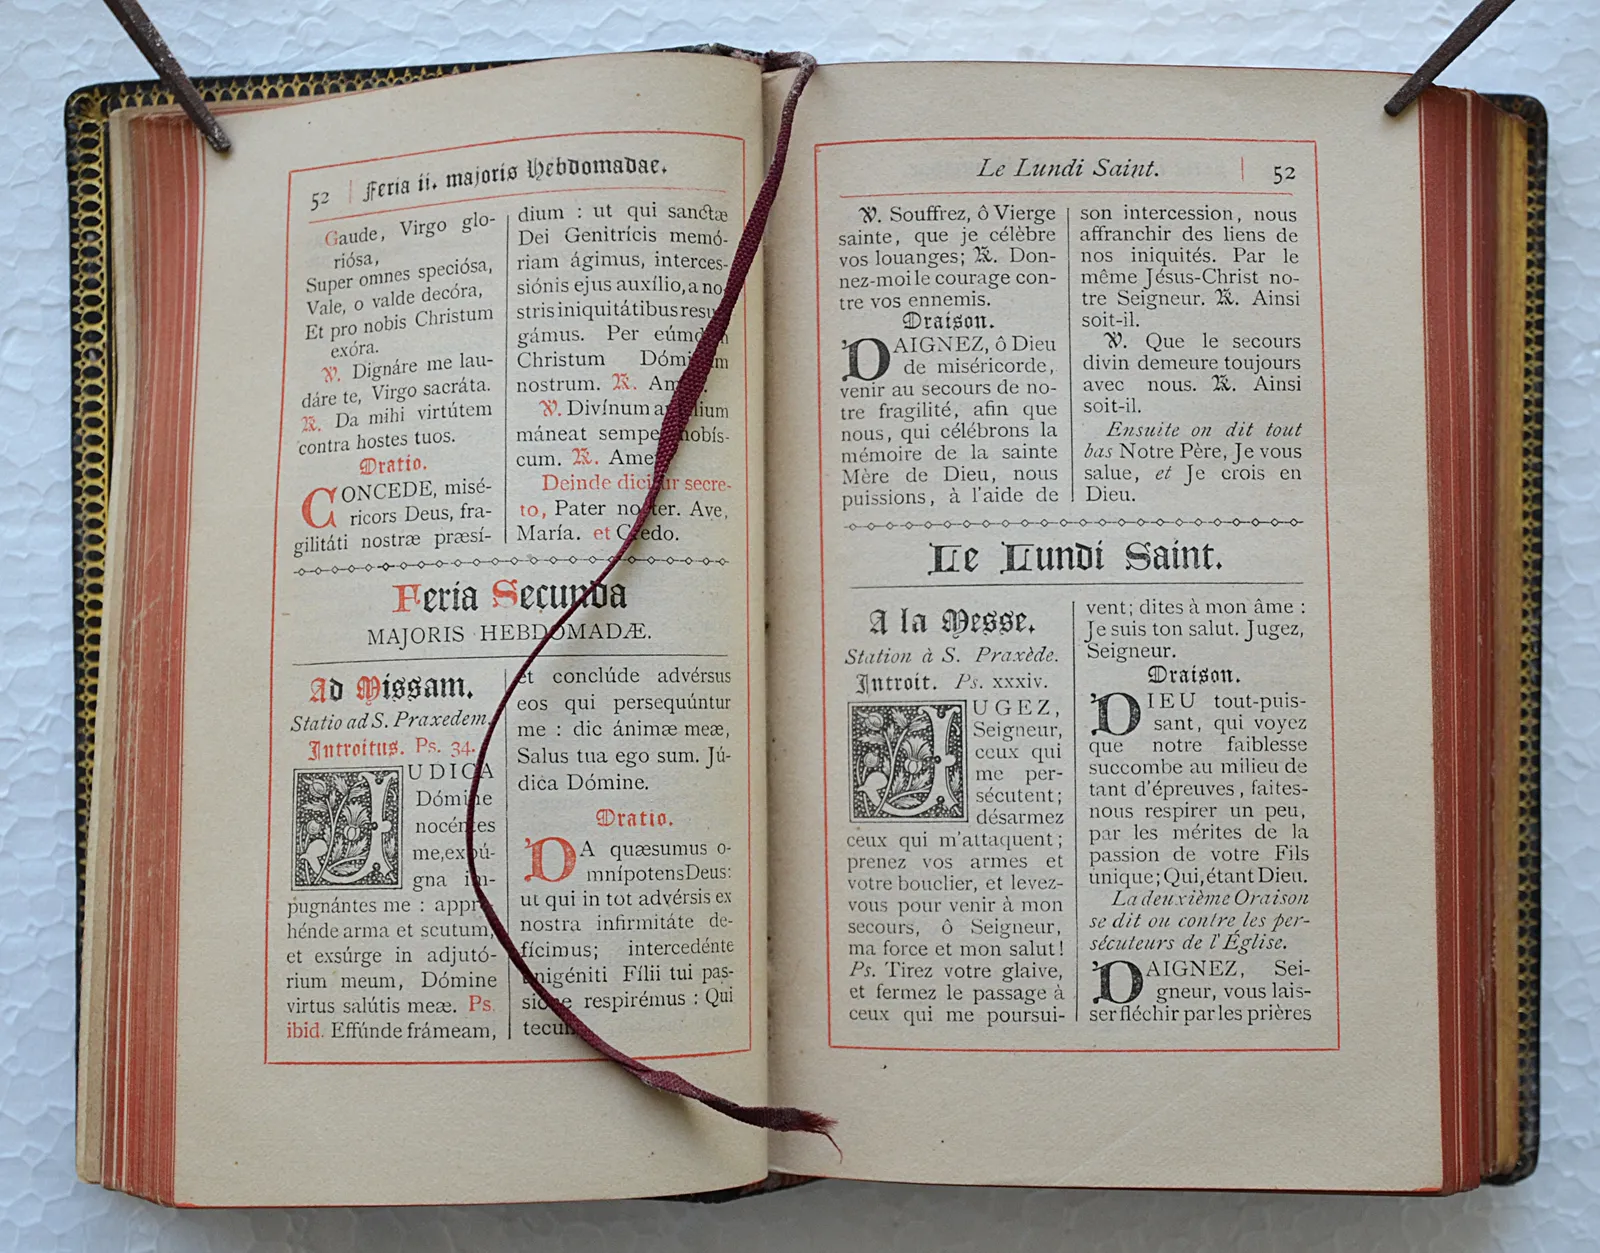 52 | Feria ii. majoris Hebdomadae.
Gaude, Virgo glo-
riósa,
Super omnes speciósa,
Vale, o valde decóra,
Et pro nobis Christum
exóra.
℣. Dignáre me lau-
dáre te, Virgo sacráta.
℟. Da mihi virtútem
contra hostes tuos.
Oratio.
CONCEDE, misé-
ricors Deus, fra-
gilitáti nostræ præsí-
dium : ut qui sanctæ
Dei Genitrícis memó-
riam ágimus, interces-
siónis ejus auxílio, a no-
stris iniquitátibus
gámus. Per
Christum
nostrum. ℟.
℣. Divínum
máneat
cum. ℟.
Deinde secre-
to, Pater Ave,
María. et
Feria Secunda
MAJORIS HEBDOMADÆ.
Ad Missam.
Statio ad S. Praxedem.
Introitus. Ps. 34.
JUDICA
Dómine
nocéntes
me,
gna im-
pugnántes me :
hénde arma et scutum,
et exsúrge in adjutó-
rium meum, Dómine
virtus salútis meæ. Ps.
ibid. Effúnde frámeam,
et conclúde advérsus
eos qui persequúntur
me : dic ánimæ meæ,
Salus tua ego sum. Jú-
dica Dómine.
Oratio.
DA quæsumus o-
mnípotens Deus:
ut qui in tot advérsis ex
nostra infirmitáte de-
fícimus; intercedénte
unigéniti Fílii tui pas-
respirémus : Qui
Le Lundi Saint. | 52
℣. Souffrez, ô Vierge
sainte, que je célèbre
vos louanges; ℟. Don-
nez-moi le courage con-
tre vos ennemis.
Oraison.
DAIGNEZ, ô Dieu
de miséricorde,
venir au secours de no-
tre fragilité, afin que
nous, qui célébrons la
mémoire de la sainte
Mère de Dieu, nous
puissions, à l'aide de
son intercession, nous
affranchir des liens de
nos iniquités. Par le
même Jésus-Christ no-
tre Seigneur. ℟. Ainsi
soit-il.
℣. Que le secours
divin demeure toujours
avec nous. ℟. Ainsi
soit-il.
Ensuite on dit tout
bas Notre Père, Je vous
salue, et Je crois en
Dieu.
Le Lundi Saint.
A la Messe.
Station à S. Praxède.
Introit. Ps. xxxiv.
JUGEZ,
Seigneur,
ceux qui
me per-
sécutent;
désarmez
ceux qui m'attaquent;
prenez vos armes et
votre bouclier, et levez-
vous pour venir à mon
secours, ô Seigneur,
ma force et mon salut!
Ps. Tirez votre glaive,
et fermez le passage à
ceux qui me poursui-
vent; dites à mon âme :
Je suis ton salut. Jugez,
Seigneur.
Oraison.
DIEU tout-puis-
sant, qui voyez
que notre faiblesse
succombe au milieu de
tant d'épreuves, faites-
nous respirer un peu,
par les mérites de la
passion de votre Fils
unique; Qui, étant Dieu.
La deuxième Oraison
se dit ou contre les per-
sécuteurs de l'Église.
DAIGNEZ, Sei-
gneur, vous lais-
ser fléchir par les prières